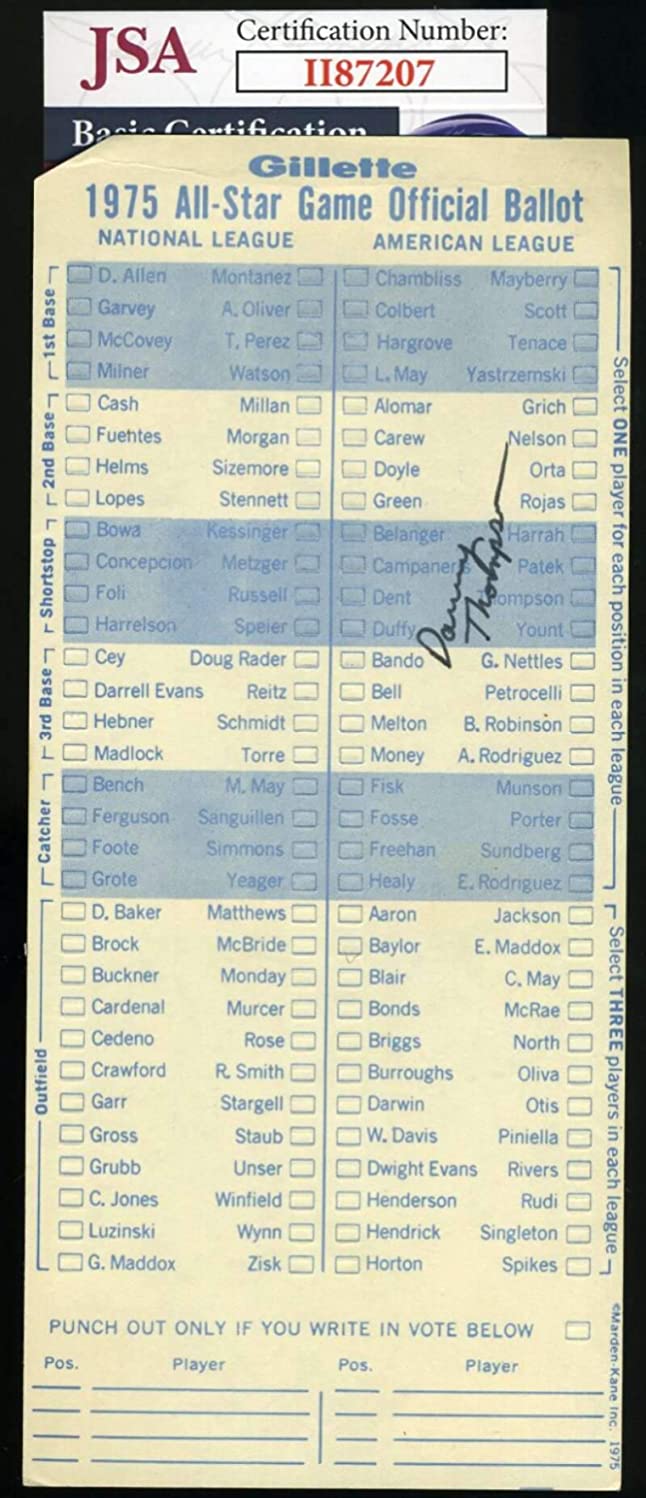 JSA
Certification Number:
II87207
Basic Certification
Gillette
1975 All-Star Game Official Ballot
NATIONAL LEAGUE AMERICAN LEAGUE
1st Base
D. Allen Montanez Chambliss Mayberry
Garvey A. Oliver Colbert Scott
McCovey T. Perez Hargrove Tenace
Milner Watson L. May Yastrzemski
2nd Base
Cash Millan Alomar Grich
Fuentes Morgan Carew Nelson
Helms Sizemore Doyle Orta
Lopes Stennett Green Rojas
Shortstop
Bowa Kessinger Belanger Harrah
Concepcion Metzger Campaneris Patek
Foli Russell Dent ompson
Harrelson Speier Duffy Yount
Danny
Thompson
3rd Base
Cey Doug Rader Bando G. Nettles
Darrell Evans Reitz Bell Petrocelli
Hebner Schmidt Melton B. Robinson
Madlock Torre Money A. Rodriguez
Catcher
Bench M. May Fisk Munson
Ferguson Sanguillen Fosse Porter
Foote Simmons Freehan Sundberg
Grote Yeager Healy E. Rodriguez
Select ONE player for each position in each league
Outfield
D. Baker Matthews Aaron Jackson
Brock McBride Baylor E. Maddox
Buckner Monday Blair C. May
Cardenal Murcer Bonds McRae
Cedeno Rose Briggs North
Crawford R. Smith Burroughs Oliva
Garr Stargell Darwin Otis
Gross Staub W. Davis Piniella
Grubb Unser Dwight Evans Rivers
C. Jones Winfield Henderson Rudi
Luzinski Wynn Hendrick Singleton
G. Maddox Zisk Horton Spikes
Select THREE players in each league
PUNCH OUT ONLY IF YOU WRITE IN VOTE BELOW
Pos. Player Pos. Player
©Marden-Kane Inc. 1975